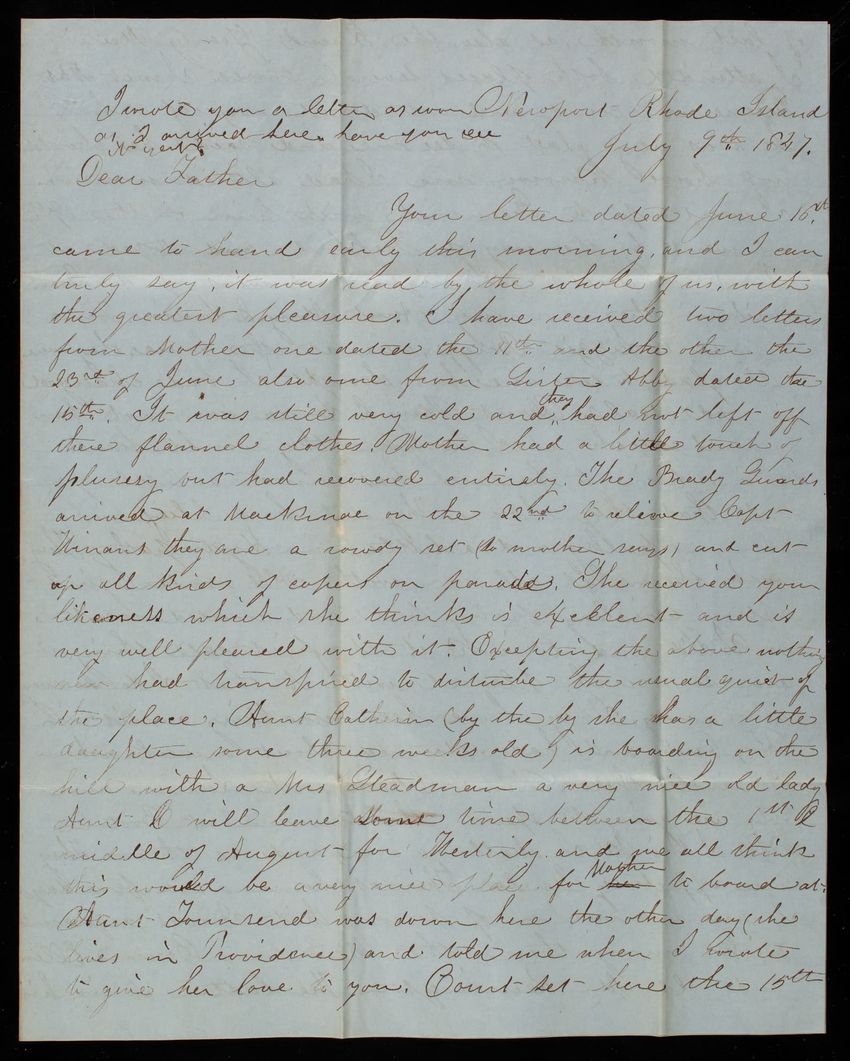 I wrote you a letter as soon Newport Rhode Island
as I arrived here have you
July 9th 1847.
Dear Father
Your letter dated June 16th
came to hand early this morning, and I can
truly say, it was read by the whole of us, with
the greatest pleasure. I have received two letters
from Mother one dated the 11th and the other the
23rd of June also one from Sister Abby dated the
15th. It was still very cold and they had not left off
there flannel clothes. Mother had a little touch of
plurezy but had recovered entirely. The Brady Guards
arrived at Mackinac on the 22nd to relieve Capt
Winans they are a rowdy set (so mother says) and cut
up all kinds of capers on parade. She received your
likeness which she thinks is excellent and is
very well pleased with it. Excepting the above nothing
new had transpired to disturbe the usual quiet of
the place. Aunt Catherin (by the by she has a little
daughter some three weeks old) is boarding on the
hill with a Mrs Steadman a very nice old lady
Aunt C will leave some time between the 1st &
middle of August for Westerly and we all think
this would be a very nice place for her Mother to board at.
Aunt Townsend was down here the other day (she
lives in Providence) and told me when I wrote
to give her love to you. Court set here the 15th